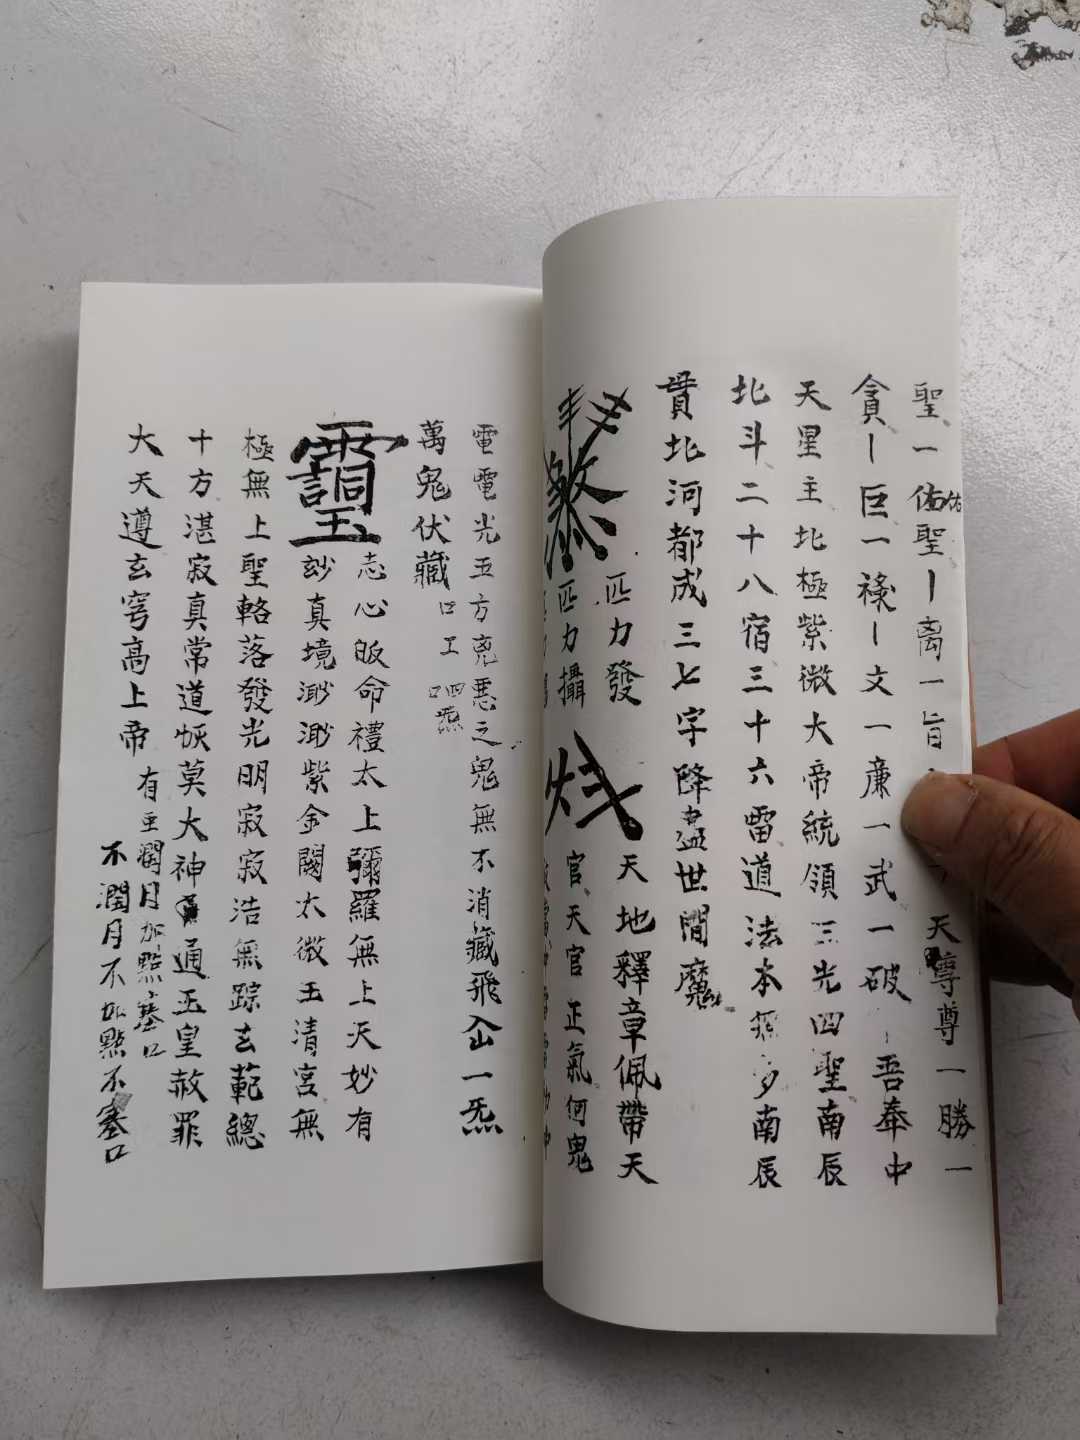 聖一佑聖丨离一旨天尊尊一勝一
佑
貪丨巨一祿丨文一廉一武一破
吾奉中
天星主北極紫微大帝統領三光四聖南辰
北斗二十八宿三十六雷道法本無多南辰
貫北河都成三七字降盡世間魔
匹力發
天地釋章佩帶天
匹力攝
官天官正氣何鬼
電電光五方兇惡之鬼無不消藏飛仚一炁
萬鬼伏藏
口工
四炁
口
志心皈命禮太上彌羅無上天妙有
玅真境渺渺紫金闕太微玉清宮無
極無上聖輅落發光明寂寂浩無踪玄範總
十方湛寂真常道恢莫大神通玉皇赦罪
大天遵玄穹高上帝
有重閏月加點塞口
不閏月不加點不塞口